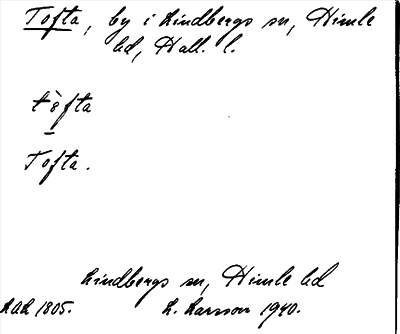 Tofta, by i Lindbergs sn, Himle
hd, Hall. l.
tòfta
Tofta.
Lindbergs sn, Himle hd
L. Larsson 1940.